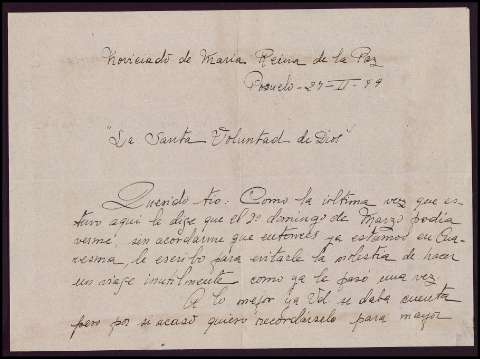 Noviciado de María Reina de la Paz
Pozuelo - 27 - II - 49
"La Santa Voluntad de Dios"
Querido tío: Como la última vez que es-
tuvo aquí le dije que el domingo de Marzo podía
verme, sin acordarme que entonces ya estamos en Cua-
resma, le escribo para evitarle la molestia de hacer
un viaje inutilmente como ya le pasó una vez
A lo mejor ya Vd se daba cuenta
pero por si acaso quiero recordárselo para mayor